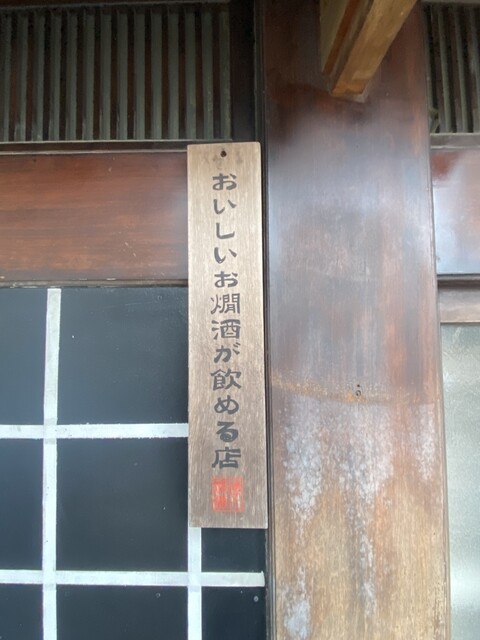 おいしいお燗酒が飲める店